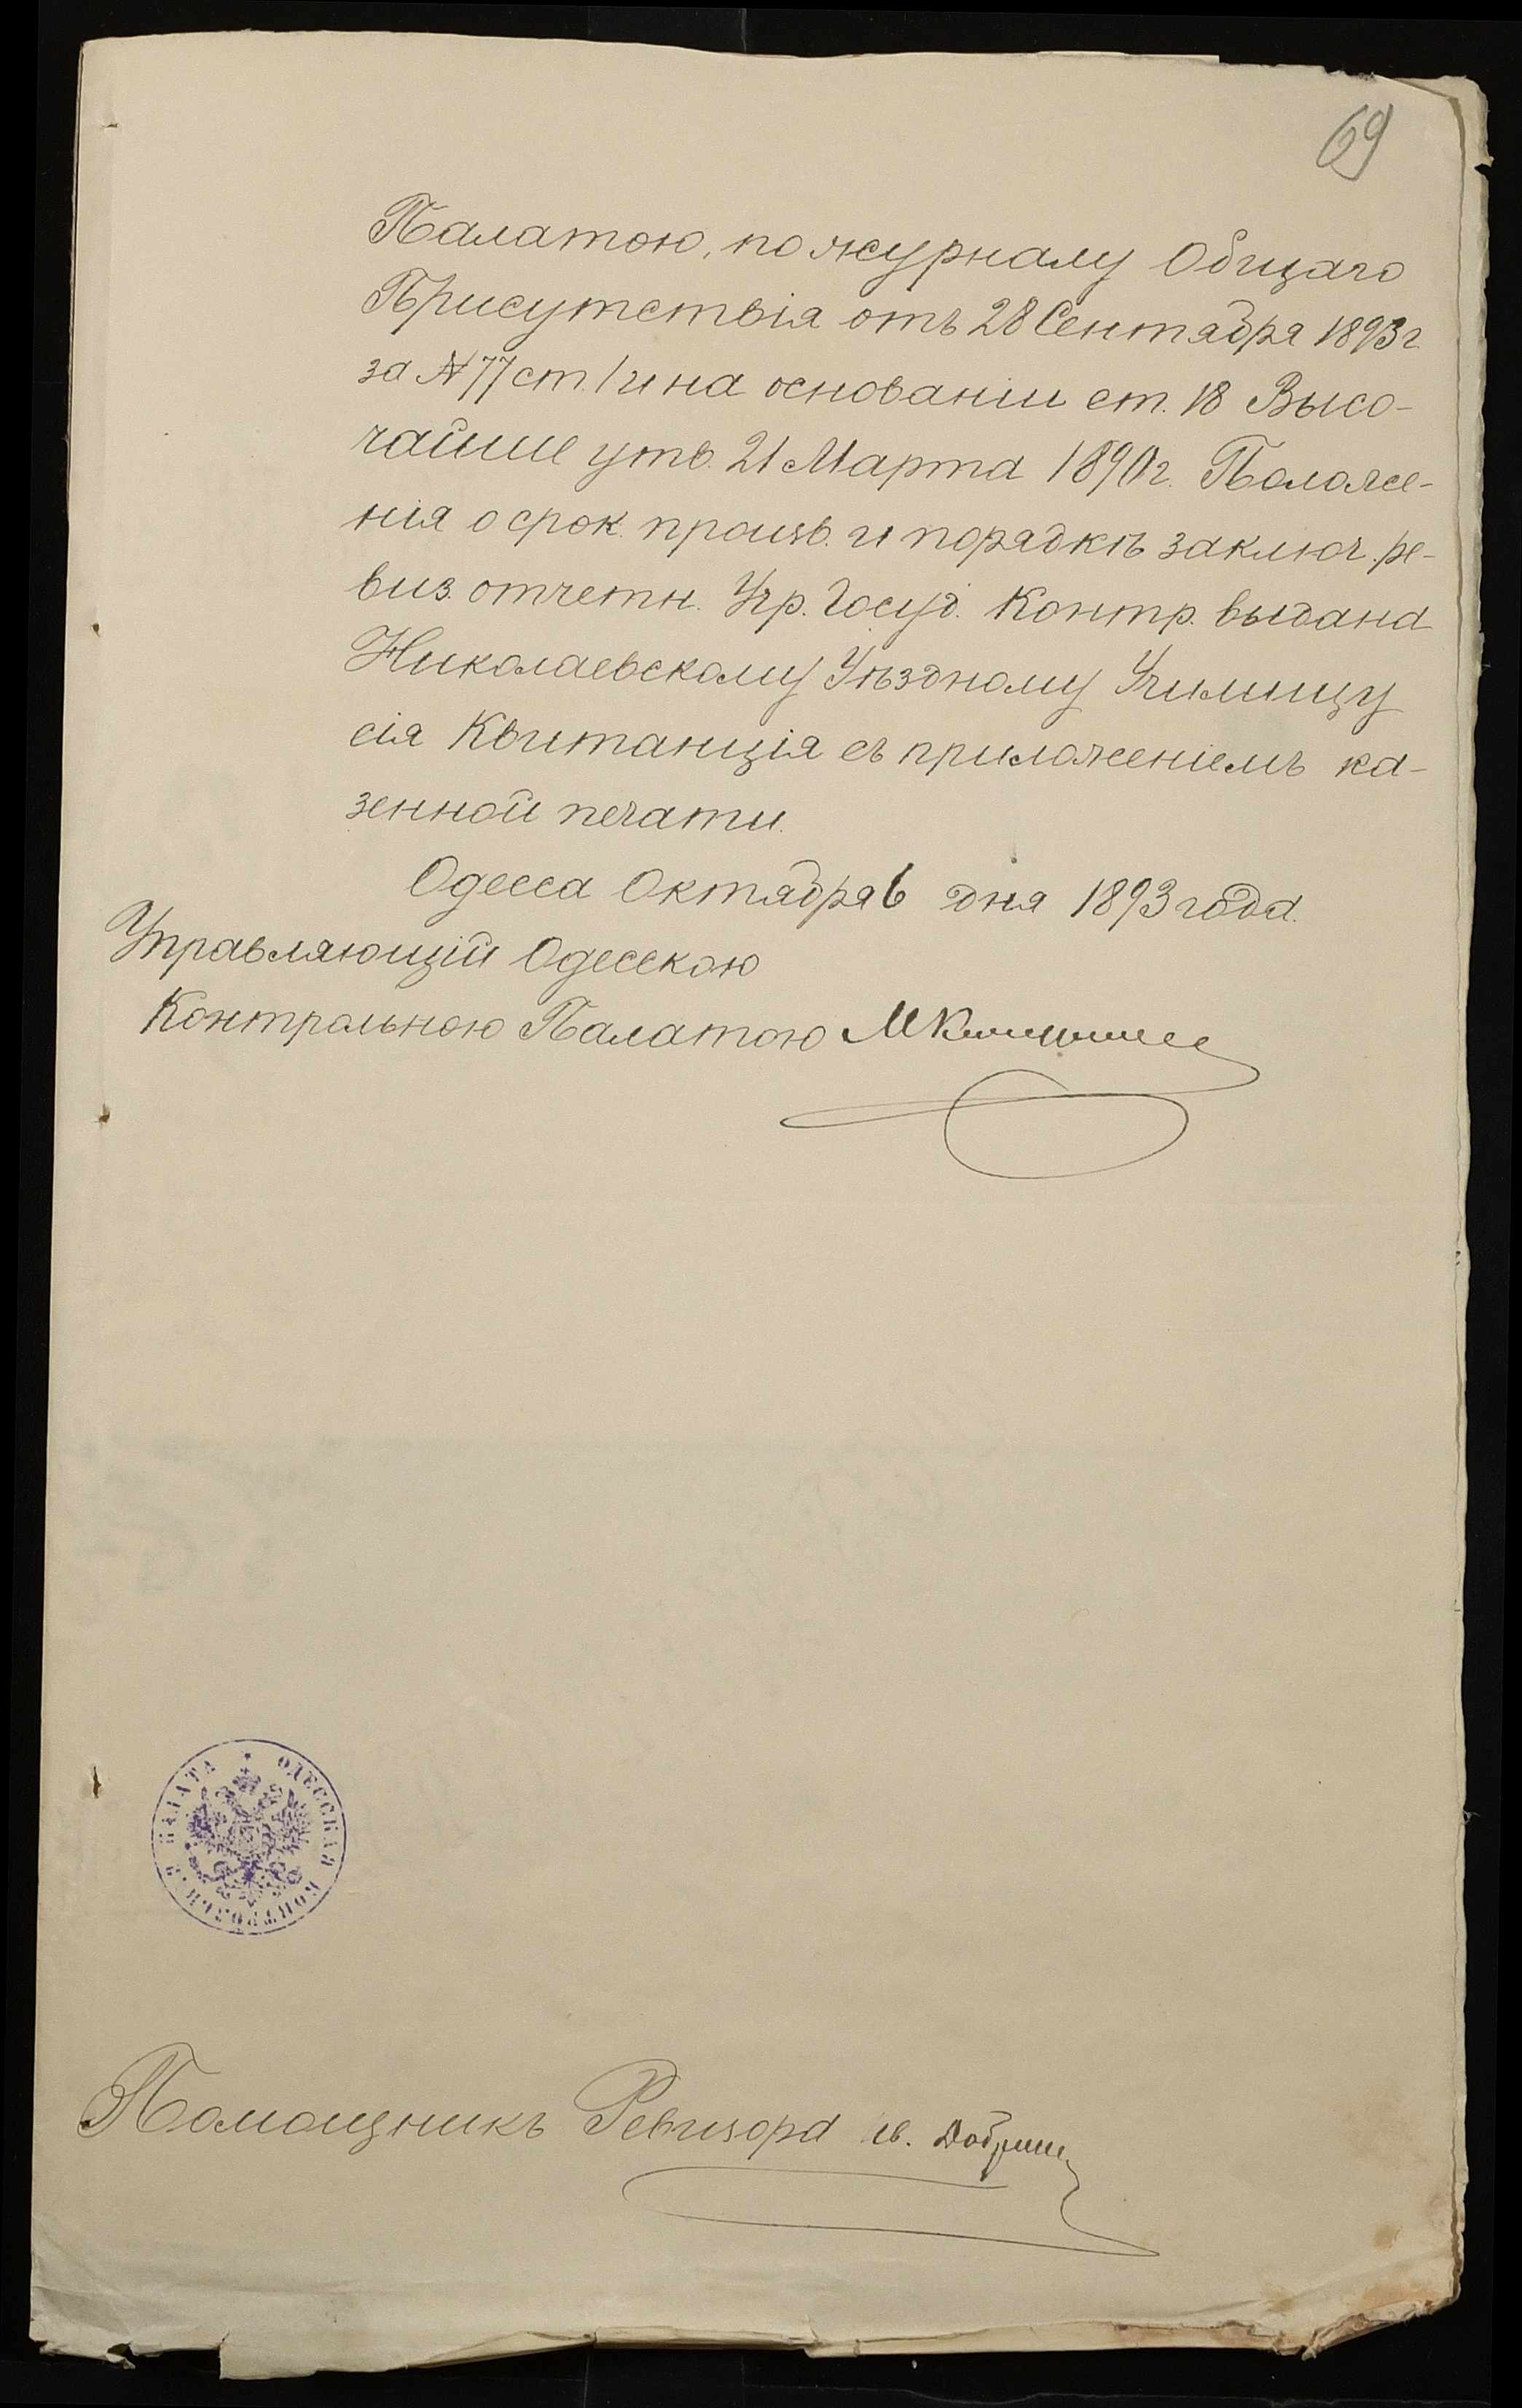 69
Палатою, по журналу Общаго
Присутствія отъ 28 Сентября 1893 г
за № 77 ст. 1 и на основаніи ст. 18 Высо-
чайше утв. 21 Марта 1890 г. Положе-
нія о срок. произв. и порядкѣ заключ. ре-
виз. отчетн. Учр. Госуд. Контр. выдана
Николаевскому Уѣздному Училищу
сія Квитанція съ приложеніемъ ка-
зенной печати.
Одесса Октября 6 дня 1893 года.
Управляющій Одесскою
Контрольною Палатою
ОДЕССКАЯ КОНТРОЛЬН.Я ПАЛАТА
Помощникъ Ревизора